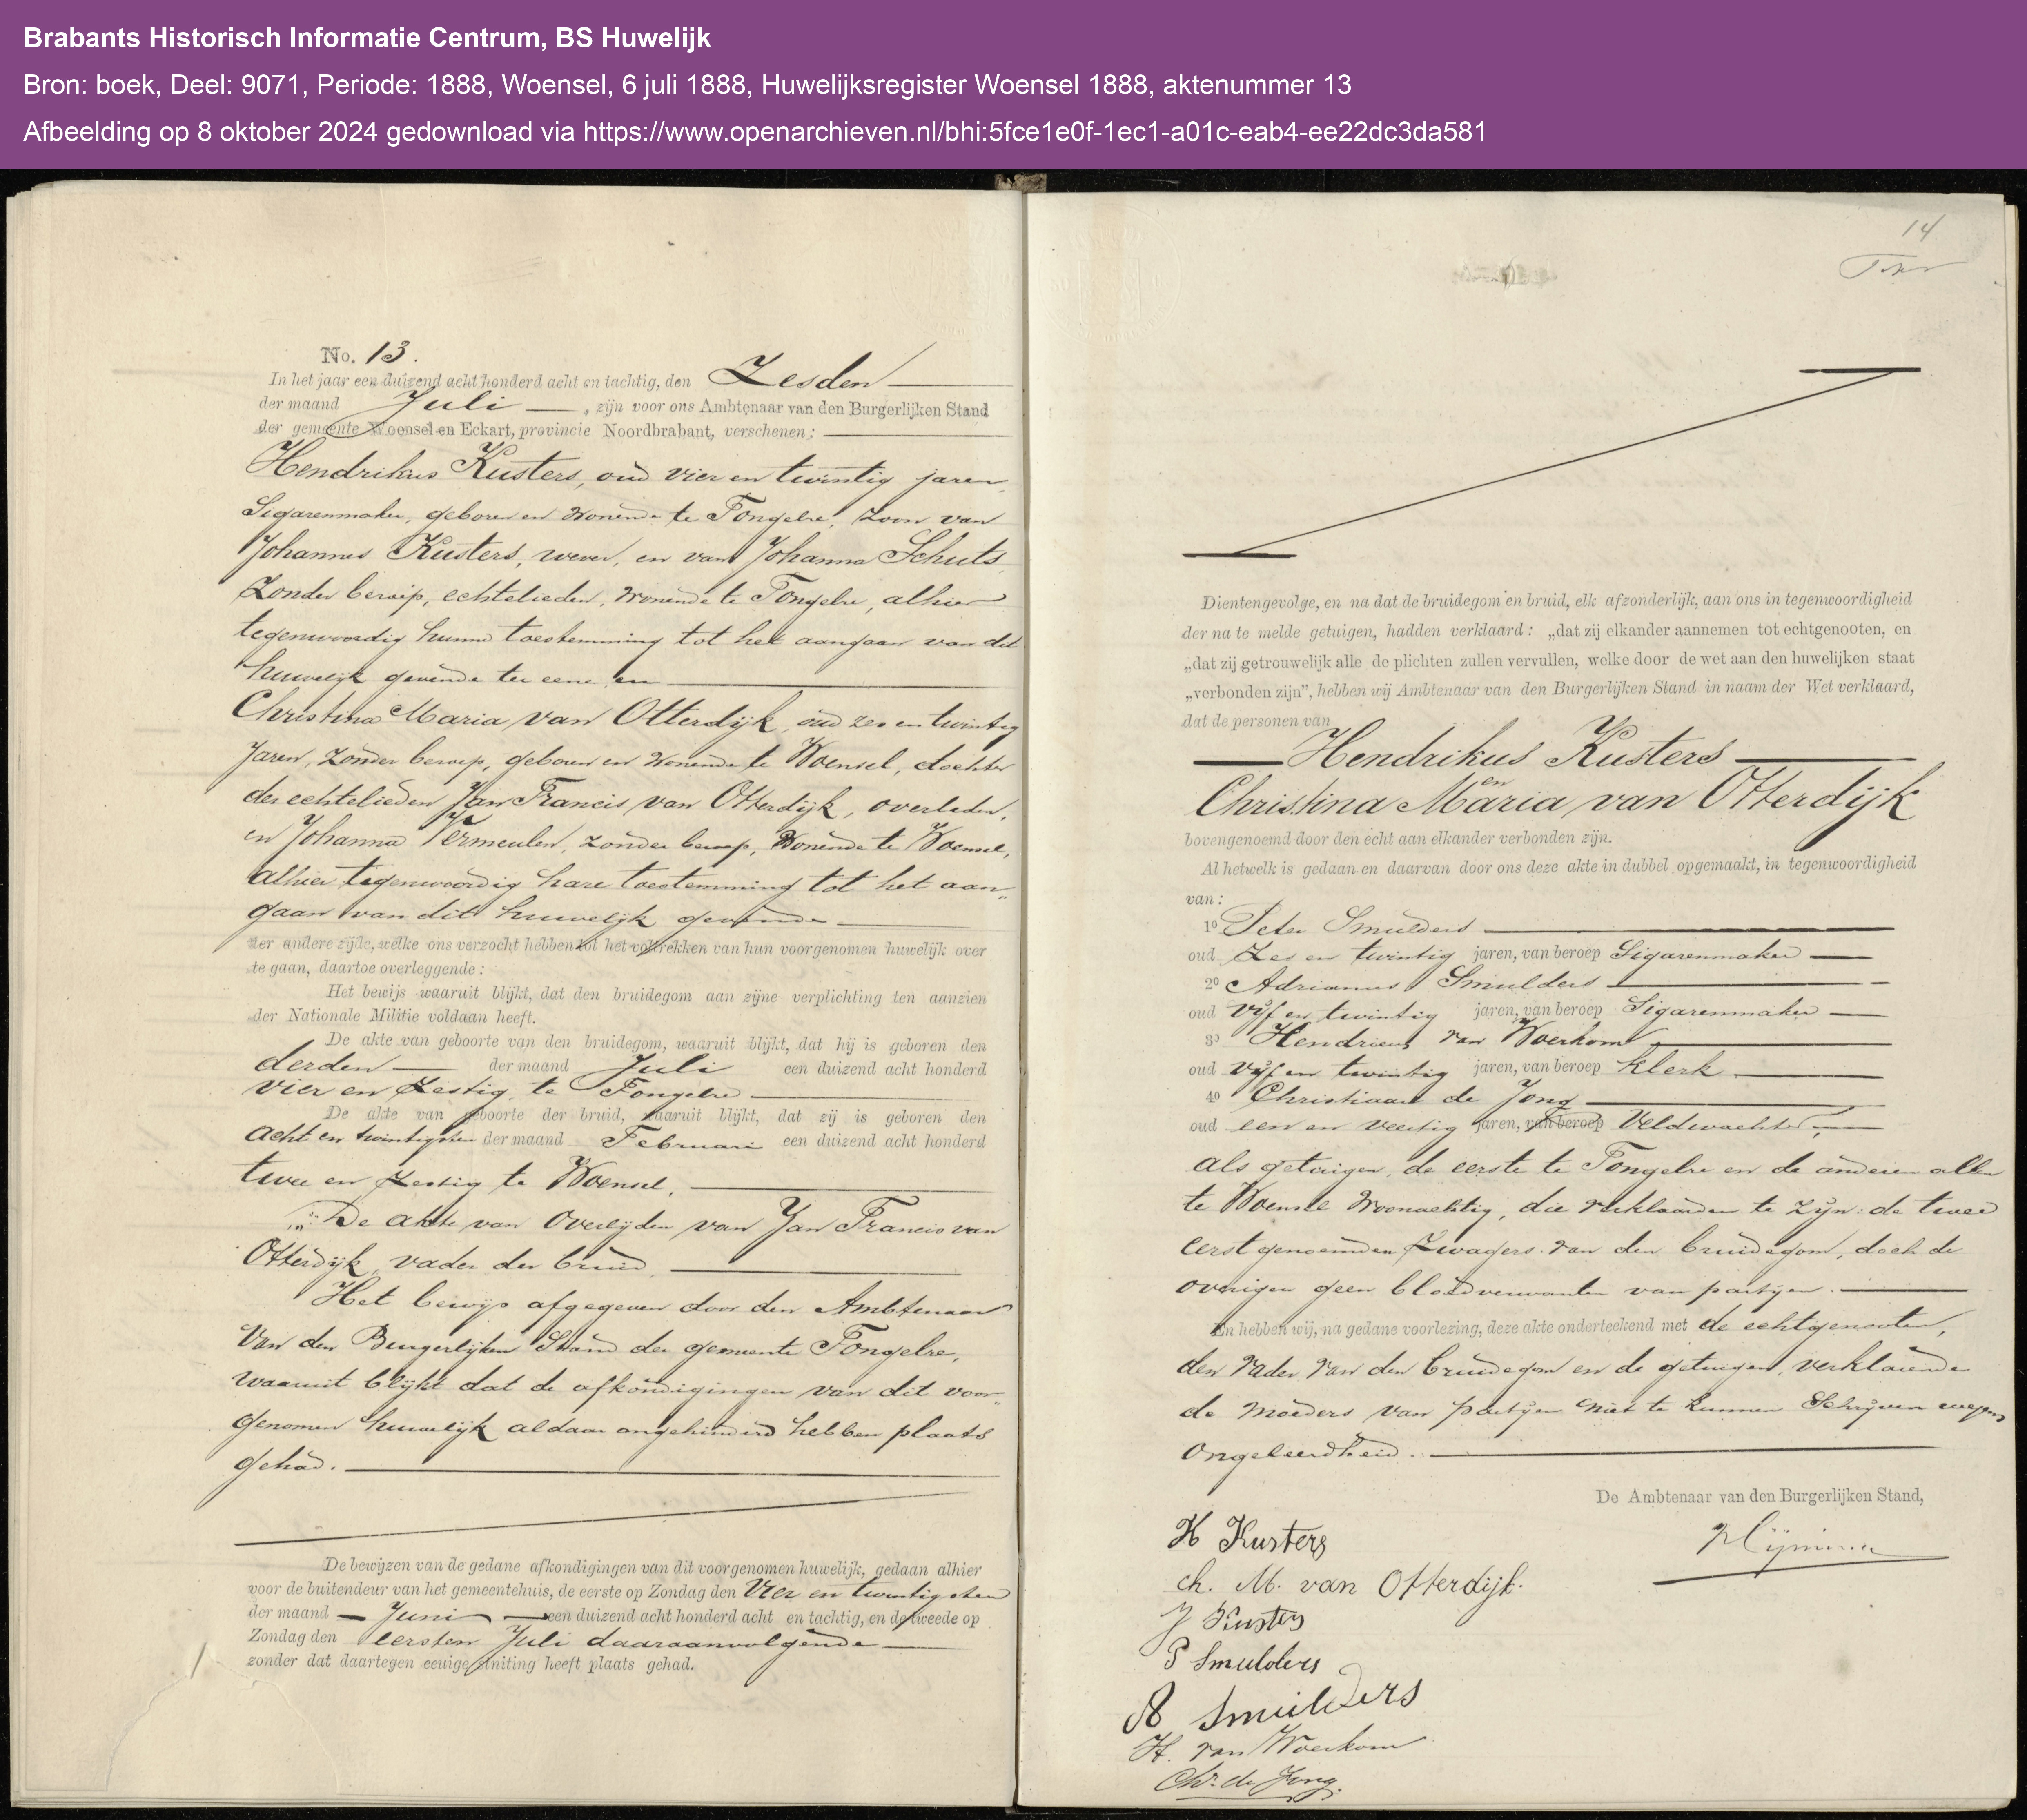 Brabants Historisch Informatie Centrum, BS Huwelijk
Bron: boek, Deel: 9071, Periode: 1888, Woensel, 6 juli 1888, Huwelijksregister Woensel 1888, aktenummer 13
Afbeelding op 8 oktober 2024 gedownload via https://www.openarchieven.nl/bhi:5fce1e0f-1ec1-a01c-eab4-ee22dc3da581
No. 13.
In het jaar een duizend acht honderd acht en tachtig, den Zesden
der maand Juli, zijn voor ons Ambtenaar van den Burgerlijken Stand
der gemeente Woensel en Eckart, provincie Noordbrabant, verschenen:
Hendrikus Kusters, oud vier en twintig jaren,
Sigarenmaker, geboren en wonende te Tongelre, zoon van
Johannes Kusters, wever, en van Johanna Schuts,
zonder beroep, echtelieden, wonende te Tongelre, alhier
tegenwoordig hunne toestemming tot het aangaan van dit
huwelijk gevende ter eene en
Christina Maria van Otterdijk, oud zes en twintig
jaren, zonder beroep, geboren en wonende te Woensel, dochter
der echtelieden Jan Francis van Otterdijk, overleden,
en Johanna Vermeulen, zonder beroep, wonende te Woensel,
alhier tegenwoordig hare toestemming tot het aan-
gaan van dit huwelijk gevende
ter andere zijde, welke ons verzocht hebben tot het voltrekken van hun voorgenomen huwelijk over
te gaan, daartoe overleggende:
Het bewijs waaruit blijkt, dat den bruidegom aan zijne verplichting ten aanzien
der Nationale Militie voldaan heeft.
De akte van geboorte van den bruidegom, waaruit blijkt, dat hij is geboren den
derden der maand Juli een duizend acht honderd
vier en zestig te Tongelre
De akte van geboorte der bruid, waaruit blijkt, dat zij is geboren den
acht en twintigsten der maand Februari een duizend acht honderd
twee en zestig te Woensel.
De akte van overlijden van Jan Francis van
Otterdijk, vader der bruid,
Het bewijs afgegeven door den Ambtenaar
van den Burgerlijken Stand der gemeente Tongelre,
waaruit blijkt dat de afkondigingen van dit voor-
genomen huwelijk aldaar ongehinderd hebben plaats
gehad.
De bewijzen van de gedane afkondigingen van dit voorgenomen huwelijk, gedaan alhier
voor de buitendeur van het gemeentehuis, de eerste op Zondag den vier en twintigsten
der maand Juni een duizend acht honderd acht en tachtig, en de tweede op
Zondag den eersten Juli daaraanvolgende
zonder dat daartegen eenige stuiting heeft plaats gehad.
14
Dientengevolge, en na dat de bruidegom en bruid, elk afzonderlijk, aan ons in tegenwoordigheid
der na te melde getuigen, hadden verklaard: „dat zij elkander aannemen tot echtgenooten, en
„dat zij getrouwelijk alle de plichten zullen vervullen, welke door de wet aan den huwelijken staat
„verbonden zijn", hebben wij Ambtenaar van den Burgerlijken Stand in naam der Wet verklaard,
dat de personen van
Hendrikus Kusters
en
Christina Maria van Otterdijk
bovengenoemd door den echt aan elkander verbonden zijn.
Al hetwelk is gedaan en daarvan door ons deze akte in dubbel opgemaakt, in tegenwoordigheid
van:
1o Peter Smulders
oud zes en twintig jaren, van beroep Sigarenmaker
2o Adrianus Smulders
oud vijf en twintig jaren, van beroep Sigarenmaker
3o Hendricus van Woerkom
oud vijf en twintig jaren, van beroep klerk
4o Christiaan de Jong
oud een en veertig jaren, van beroep Veldwachter,
als getuigen, de eerste te Tongelre en de anderen allen
te Woensel woonachtig, die verklaarden te zijn: de twee
eerstgenoemden zwagers van den bruidegom, doch de
overigen geen bloedverwanten van partijen.
En hebben wij, na gedane voorlezing, deze akte onderteekend met de echtgenooten,
den vader van den bruidegom en de getuigen, verklarende
de moeders van partijen niet te kunnen schrijven wegens
ongeleerdheid.
De Ambtenaar van den Burgerlijken Stand,
H Kusters
ch. M. van Otterdijk.
J Kusters
P Smulders
A Smulders
H. van Woerkom
Chr. de Jong.